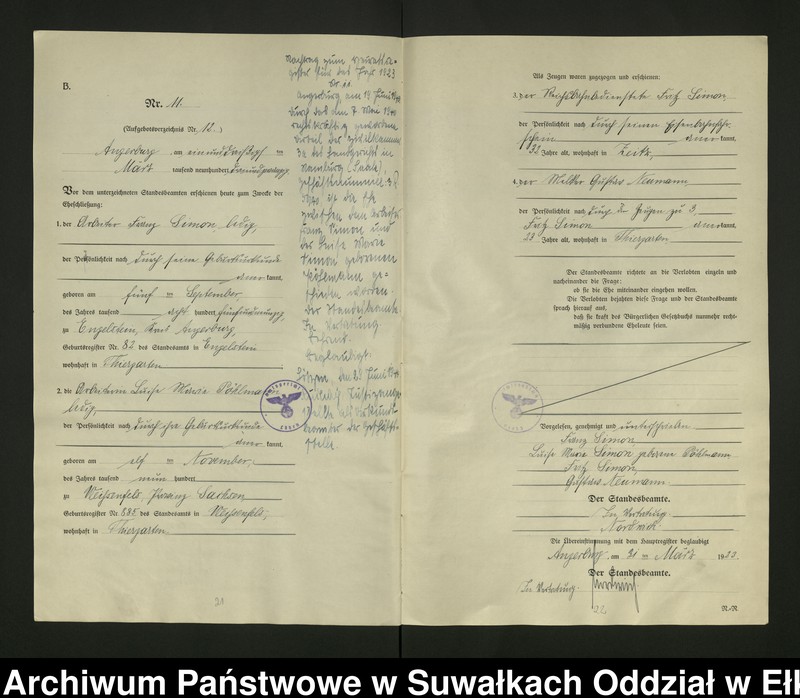 B.
Nr. 11.
(Aufgebotsverzeichnis Nr. 12.)
Angerburg am einunddreißigsten
März tausend neunhundert dreiundzwanzig
Vor dem unterzeichneten Standesbeamten erschienen heute zum Zwecke der
Eheschließung:
1. der Arbeiter Franz Simon, ledig,
der Persönlichkeit nach durch seine Geburtsurkunde
kannt,
geboren am fünf ten September
des Jahres tausend acht hundert
zu Engelstein, Kreis Angerburg,
Geburtsregister Nr. 82 des Standesamts in Engelstein
wohnhaft in Thiergarten
2. die Arbeiterin Luise Marie Pöhlmann
ledig,
der Persönlichkeit nach durch ihre Geburtsurkunde
kannt,
geboren am elf ten November
des Jahres tausend neun hundert
zu Weißenfels, Provinz Sachsen
Geburtsregister Nr. 585 des Standesamts in Weißenfels,
wohnhaft in Thiergarten
21
Nachtrag zum Heiratsre-
gister für das Jahr 1923
Nr. 11.
Angerburg am 19 Juni 1940
Durch das am 7. Mai 1940
rechtskräftig gewordene
Urteil der Zivilkammer
des Landgericht in
Naumburg (Saale),
Geschäftsnummer
1940 ist die Ehe
zwischen dem Arbeiter
Franz Simon und
der Luise Marie
Simon geborenen
Pöhlmann ge-
schieden worden.
Der Standesbeamte
In Vertretung
Beglaubigt:
Lötzen, den 25 Juni 1940
als Urkunds-
beamter der Geschäfts-
stelle.
Als Zeugen waren zugezogen und erschienen:
3. der Reichsbahnbedienstete Fritz Simon
der Persönlichkeit nach durch seinen Eisenbahnfahr-
schein kannt,
32 Jahre alt, wohnhaft in Zeitz,
4. der Melker Gustav Neumann
der Persönlichkeit nach durch den Zeugen zu 3,
Fritz Simon kannt,
23 Jahre alt, wohnhaft in Thiergarten
Der Standesbeamte richtete an die Verlobten einzeln und
nacheinander die Frage:
ob sie die Ehe miteinander eingehen wollen.
Die Verlobten bejahten diese Frage und der Standesbeamte
sprach hierauf aus,
daß sie kraft des Bürgerlichen Gesetzbuchs nunmehr recht-
mäßig verbundene Eheleute seien.
Vorgelesen, genehmigt und unterschrieben
Franz Simon,
Luise Marie Simon geborene Pöhlmann
Fritz Simon,
Gustav Neumann
Der Standesbeamte.
In Vertretung.
Die Übereinstimmung mit dem Hauptregister beglaubigt
Angerburg, am 31 ten März 1923.
Der Standesbeamte.
In Vertretung.
22
N.-R
Archiwum Państwowe w Suwałkach Oddział w Eł